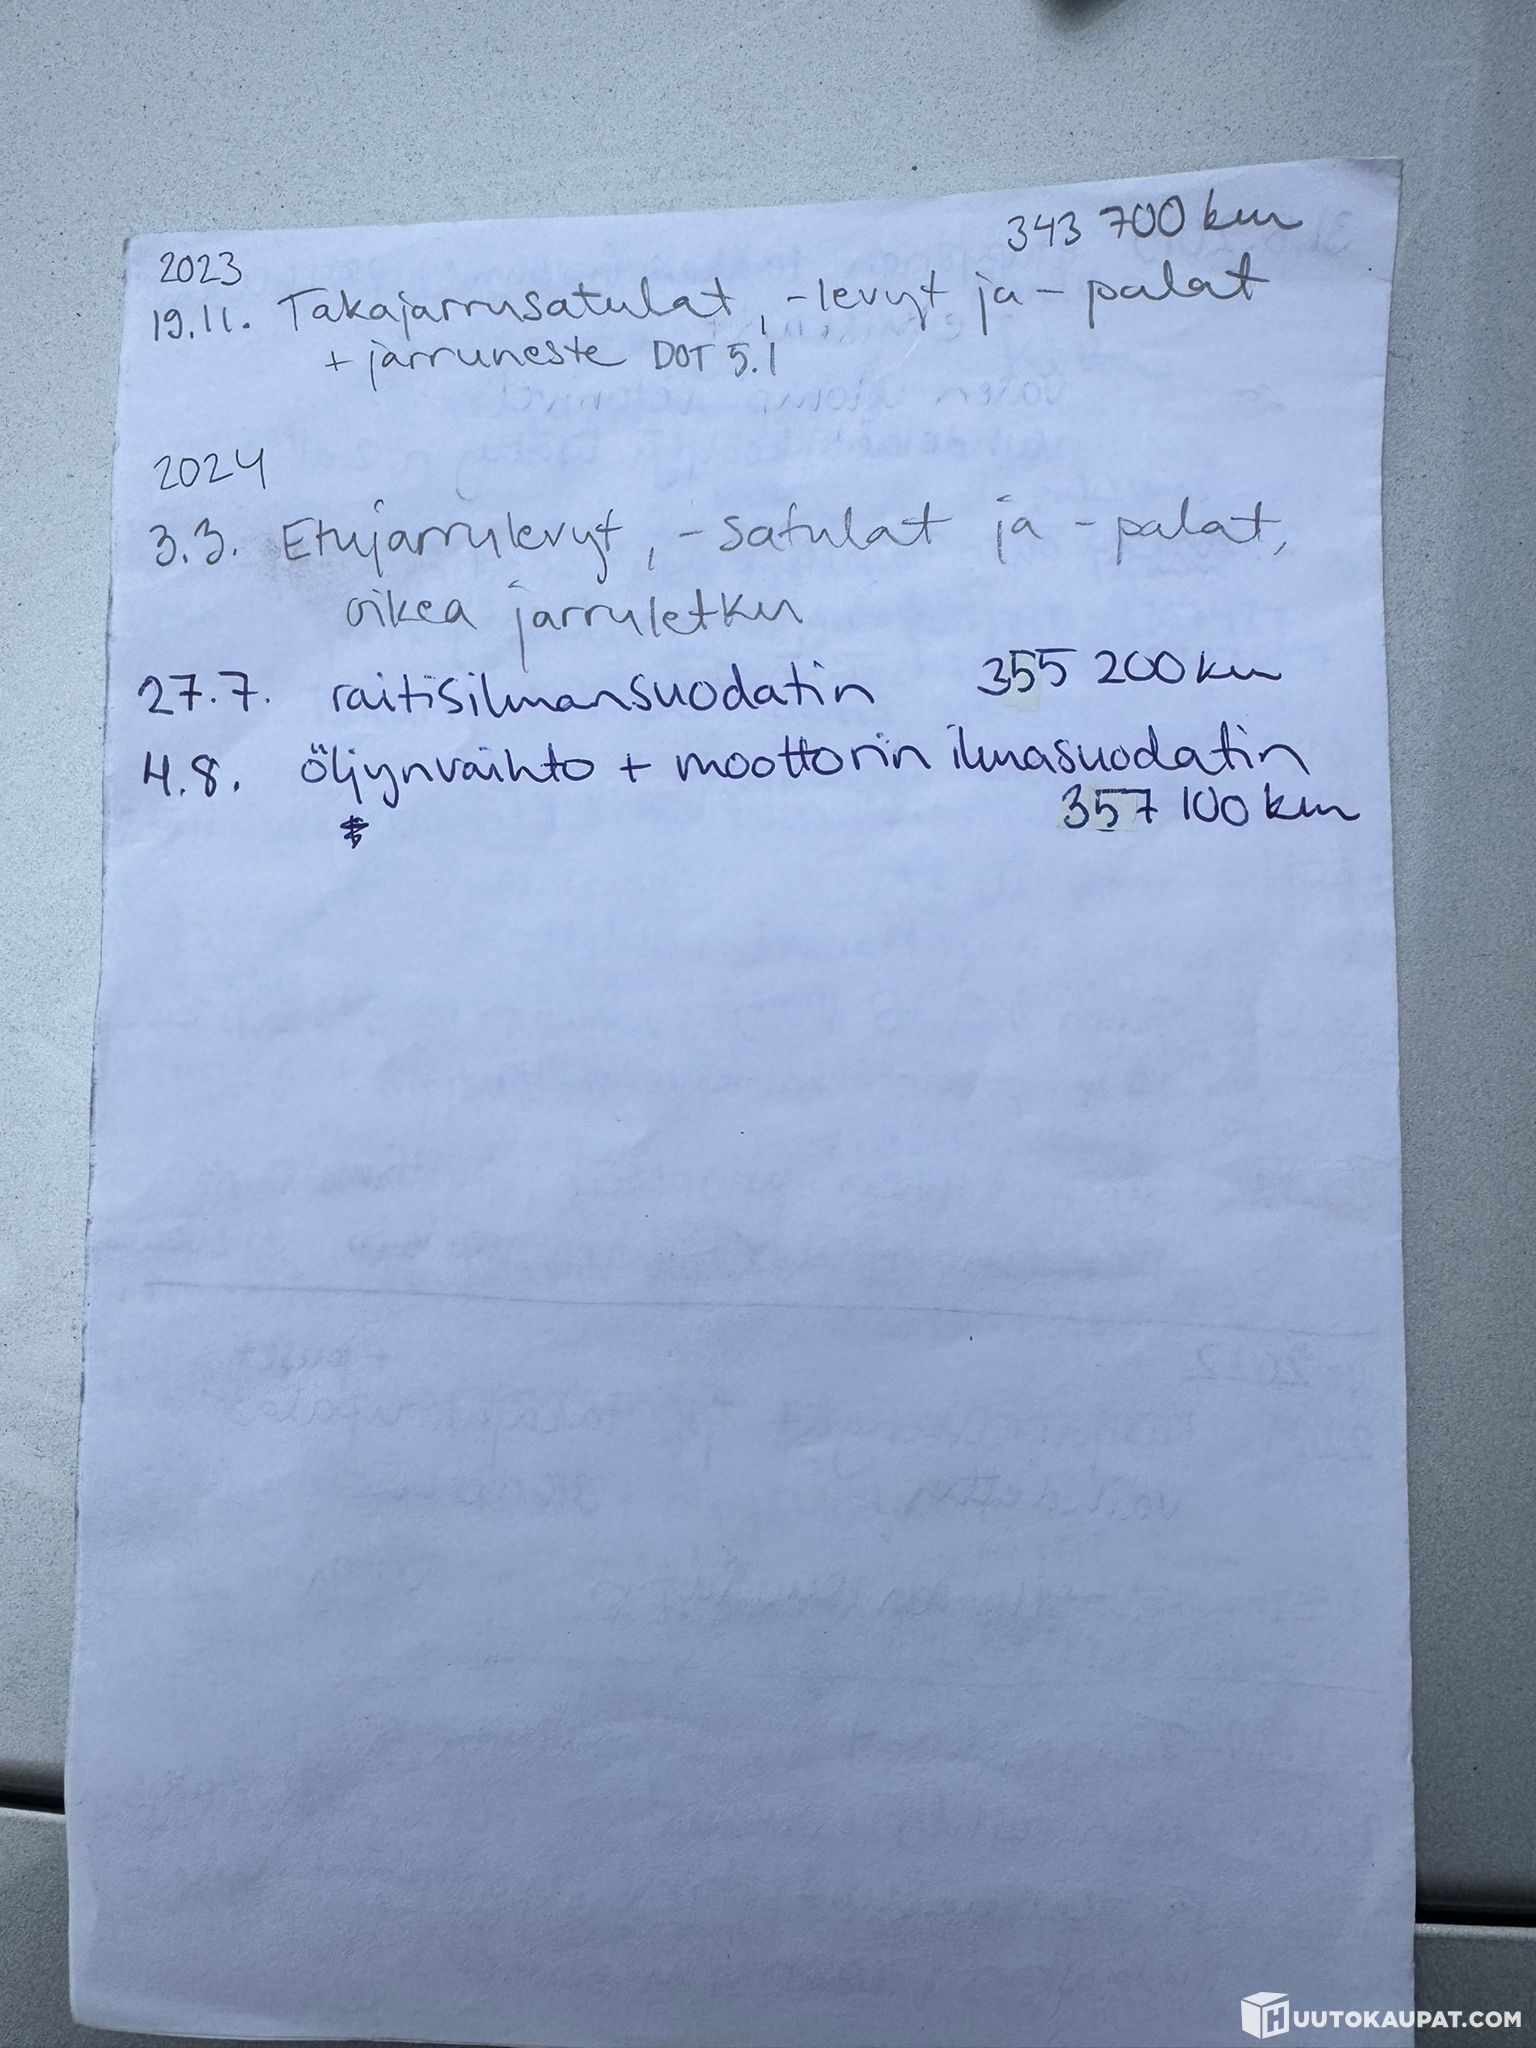 343 700 km
2023
19.11. Takajarrusatulat, -levyt ja -palat
+ jarruneste DOT 5.1
2024
3.3. Etujarrulevyt, -satulat ja -palat,
oikea jarruletku
27.7. raitisilmansuodatin 355 200 km
4.8. öljynvaihto + moottorin ilmasuodatin
357 100 km
HUUTOKAUPAT.COM